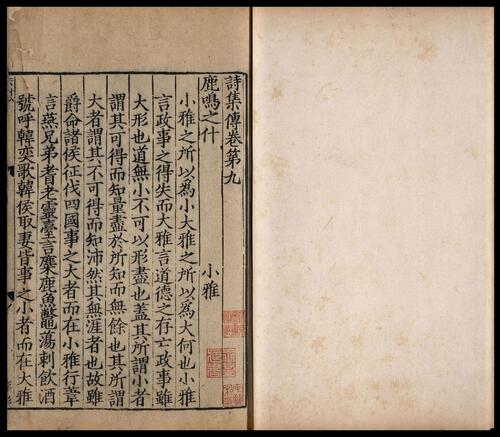 詩集傳卷第九
鹿鳴之什 小雅
小雅之所以為小大雅之所以為大何也小雅
言政事之得失而大雅言道德之存亡政事雖
大形也道無小不可以形盡也蓋其所謂小者
謂其可得而知量盡於所知而無餘也其所謂
大者謂其不可得而知沛然其無涯者也故雖
爵命諸侯征伐四國事之大者而在小雅行葦
言燕兄弟耆老靈臺言麋鹿魚鼈蕩刺飲酒
號呼韓奕歌韓侯取妻皆事之小者而在大雅